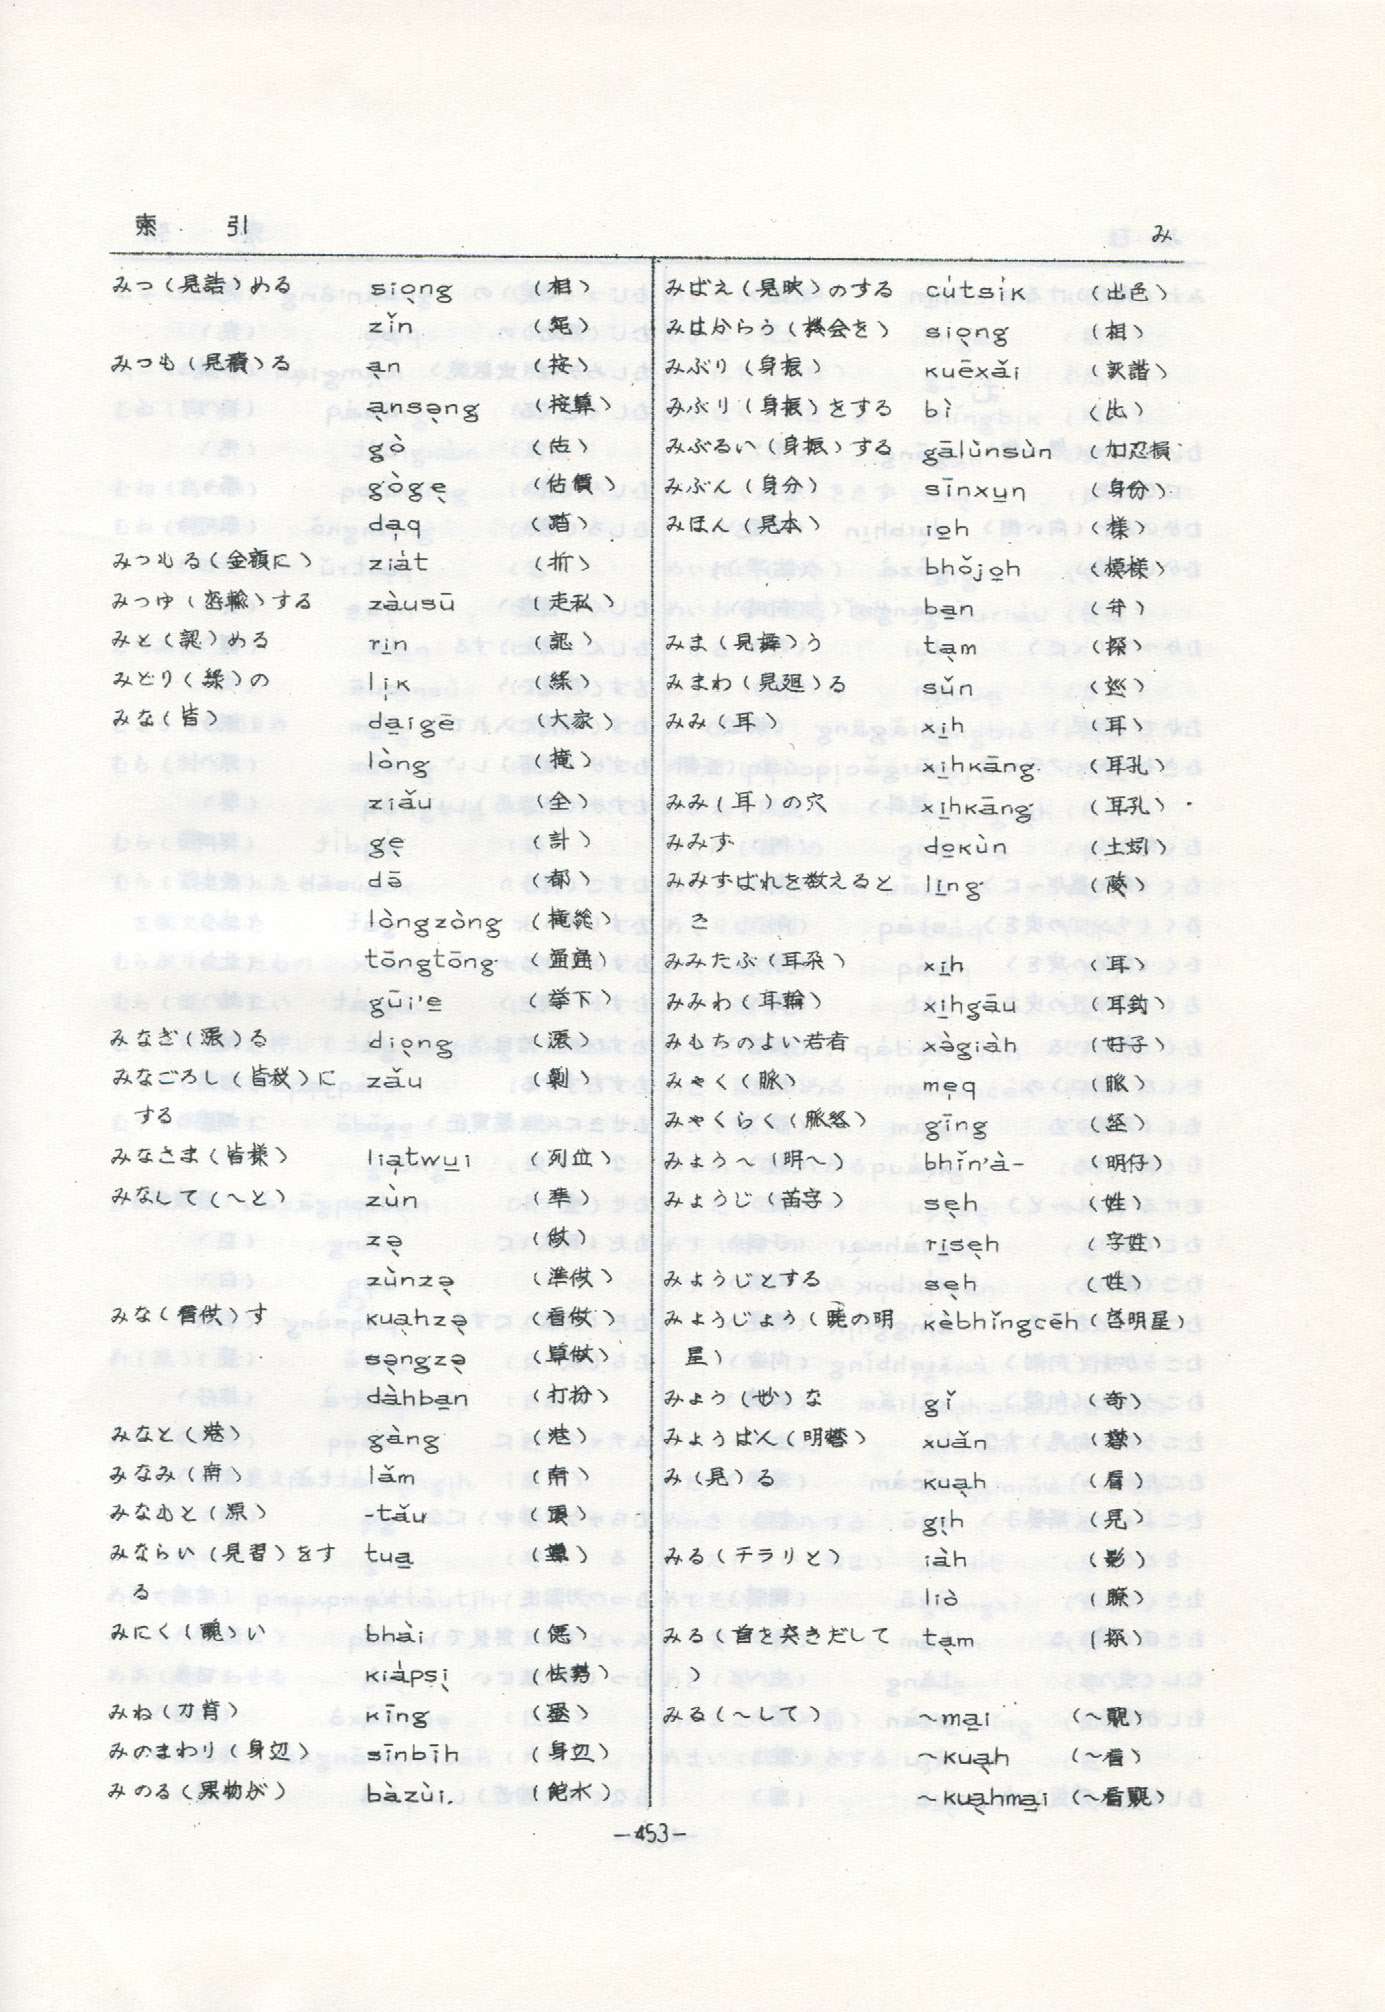 索 引
み
みつ(見詰)める siọng (相)
zǐn (䋲)
みつも(見積)る ạn (按)
ạnsə̣ng (按算)
gò (估)
gògẹ (估價)
dạq (踏)
みつもる(金額に) zia̍t (折)
みつゆ(密輸)する zàusū (走私)
みと(認)める ri̱n (認)
みどり(緑)の lị̇κ (綠)
みな(皆) da̱igē (大家)
lòng (攏)
ziǎu (全)
gẹ (計)
də̄ (都)
lòngzòng (攏総)
tōngtōng (通通)
gūi'e̱ (挙下)
みなぎ(漲)る diọng (漲)
みなごろし(皆殺)に zǎu (剿)
する
みなさま(皆様) liạtwu̱i (列位)
みなして(〜と) zùn (準)
zə̣ (做)
zùnzə̣ (準做)
みな(看做)す κuạhzə̣ (看做)
sə̣ngzə̣ (算做)
dàhba̱n (打扮)
みなと(港) gàng (港)
みなみ(南) lǎm (南)
みなもと(源) -tǎu (頭)
みならい(見習)をす tua̱
る
みにく(醜)い bhài
κia̍psị (怯勢)
みね(刀背) κīng
みのまわり(身辺) sīnbīh (身辺)
みのる(果物が) bàzùi. (飽水)
みばえ(見映)のする cu̍tsi̍κ (出色)
みはからう(機会を) siọng (相)
みぶり(身振) κuēxǎi (詼諧)
みぶり(身振)をする bì (比)
みぶるい(身振)する gālùnsùn (加忍損
みぶん(身分) sīnxu̱n (身份)
みほん(見本) io̱h (様)
bhǒjo̱h (模様)
ba̱n (弁)
みま(見舞)う tạm (探)
みまわ(見廻)る sǔn (巡)
みみ(耳) xi̱h (耳)
xi̱hκāng (耳孔)
みみ(耳)の穴 xi̱hκāng (耳孔)
みみず do̱κùn (土蚓)
みみずばれを数えると lǐng (稜)
き
みみたぶ(耳朶) xi̱h (耳)
みみわ(耳輪) xi̱hgāu (耳鈎)
みもちのよい若者 xàgiàh (好子)
みゃく(脈) mẹq (脈)
みゃくらく(脈絡) gīng (経)
みょう〜(明〜) bhǐn'à- (明仔)
みょうじ(苗字) sẹh (姓)
ri̱sẹh (字姓)
みょうじとする sẹh (姓)
みょうじょう(暁の明 κèbhǐngcēh (啓明星)
星)
みょう(妙)な gǐ (奇)
みょうばん(明礬) xuǎn (礬)
み(見)る κuạh (看)
gịh (見)
みる(チラリと) iàh (影)
liò (瞭)
みる(首を突きだして tạm (探)
)
みる(〜して) 〜ma̱i (〜覓)
〜κuạh (〜看)
〜κuạhma̱i (〜看覓)
—453—